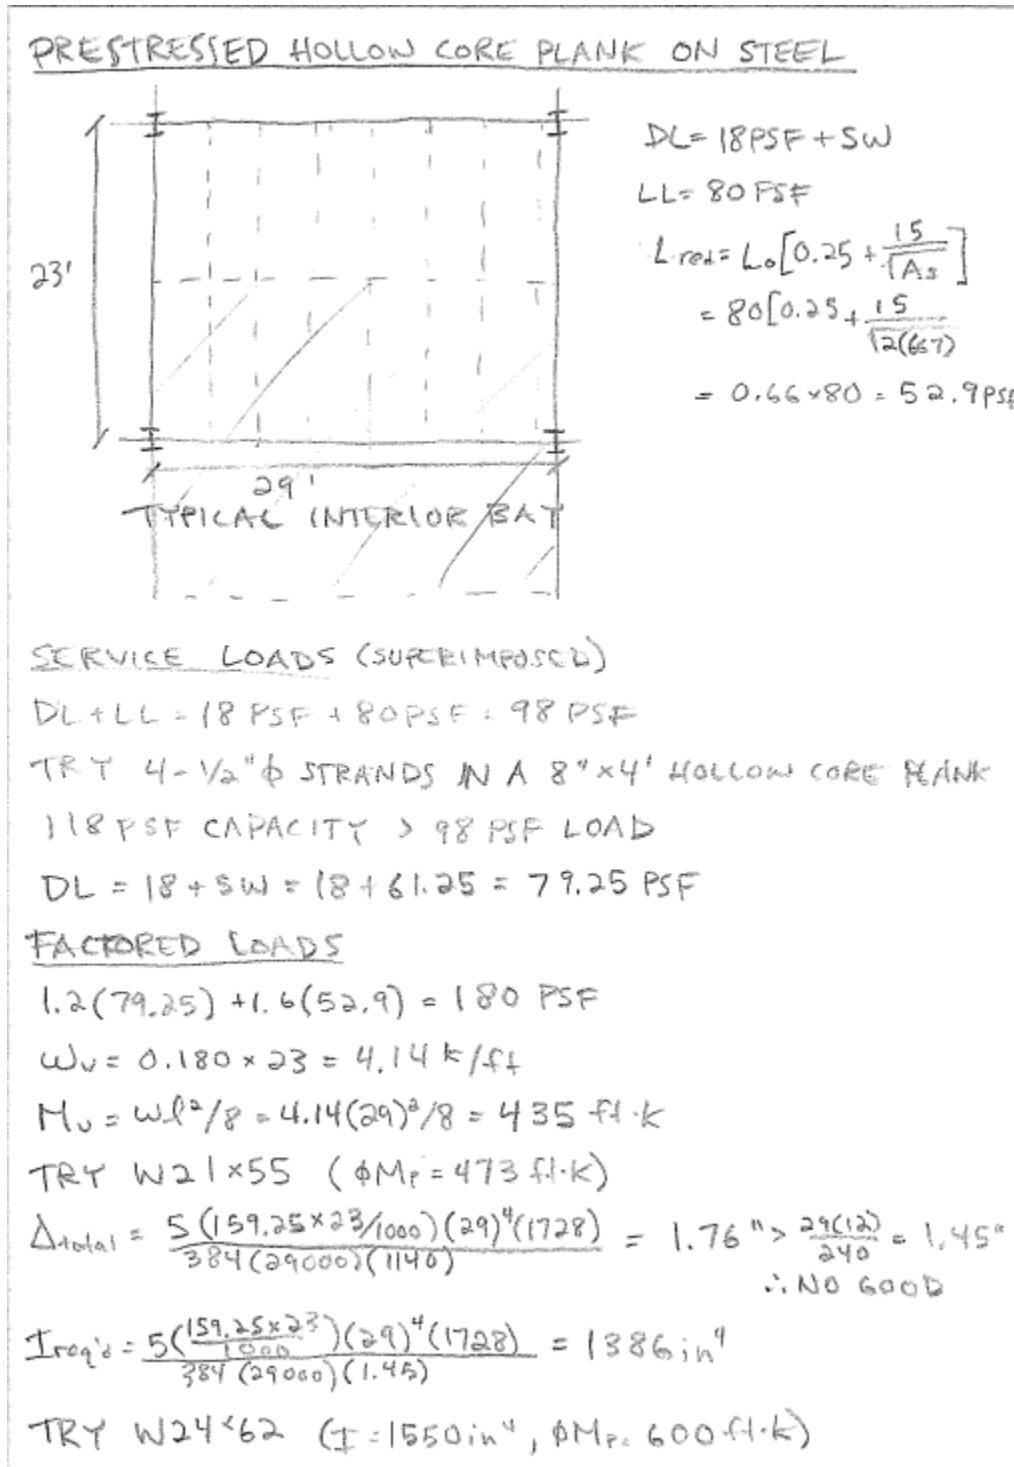 PRESTRESSED HOLLOW CORE PLANK ON STEEL
DL= 18PSF + SW
LL= 80 PSF
L red = Lo[0.25 + 15/√As]
= 80[0.25 + 15/√2(667)
= 0.66×80 = 52.9 PSF
23'
29'
TYPICAL INTERIOR BAY
SERVICE LOADS (SUPERIMPOSED)
DL+LL = 18 PSF + 80PSF = 98 PSF
TRY 4-1/2"ϕ STRANDS IN A 8"×4' HOLLOW CORE PLANK
118 PSF CAPACITY > 98 PSF LOAD
DL = 18 + SW = 18 + 61.25 = 79.25 PSF
FACTORED LOADS
1.2(79.25) +1.6(52.9) = 180 PSF
Wu = 0.180 × 23 = 4.14 k/ft
Mu = wl²/8 = 4.14(29)²/8 = 435 ft·k
TRY W21×55 (ϕMp = 473 ft·k)
Δtotal = 5(159.25×23/1000)(29)⁴(1728) / 384(29000)(1140) = 1.76" > 29(12)/240 = 1.45"
∴ NO GOOD
Ireq'd = 5(159.25×23/1000)(29)⁴(1728) / 384(29000)(1.45) = 1386 in⁴
TRY W24×62 (I = 1550in⁴, ϕMp = 600 ft·k)